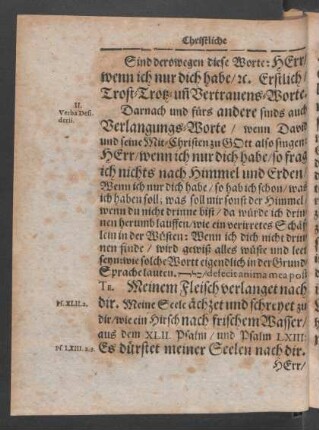 Christliche
Sind derowegen diese Worte: HErr/
wenn ich nur dich habe/ ꝛc. Erstlich/
Trost-Trotz-uñ Vertrauens-Worte.
II.
Verba Desi-
derii.
Darnach und fürs andere sinds auch
Verlangungs-Worte/ wenn David
und seine Mit-Christen zu GOtt also singen:
HErr/ wenn ich nur dich habe/ so frag
ich nichts nach Himmel und Erden/
Wenn ich nur dich habe/ so hab ich schon/ was
ich haben soll; was soll mir sonst der Himmel/
wenn du nicht drinne bist/ da würde ich drin-
nen herumb lauffen/ wie ein verirretes Schäf-
lein in der Wüsten: Wenn ich dich nicht drin-
nen finde/ wird gewiß alles wüste und leer
seyn: wie solche Wort eigendlich in der Grund-
Sprache lauten, defecit anima mea post
Te. Meinem Fleisch verlanget nach
Ps. XLII. 2.
dir. Meine Seele ächzet und schreyet zu
dir/ wie ein Hirsch nach frischem Wasser/
aus dem XLII. Psalm/ und Psalm LXIII:
Ps. LXIII. 2.
Es dürstet meiner Seelen nach dir.
HErr/